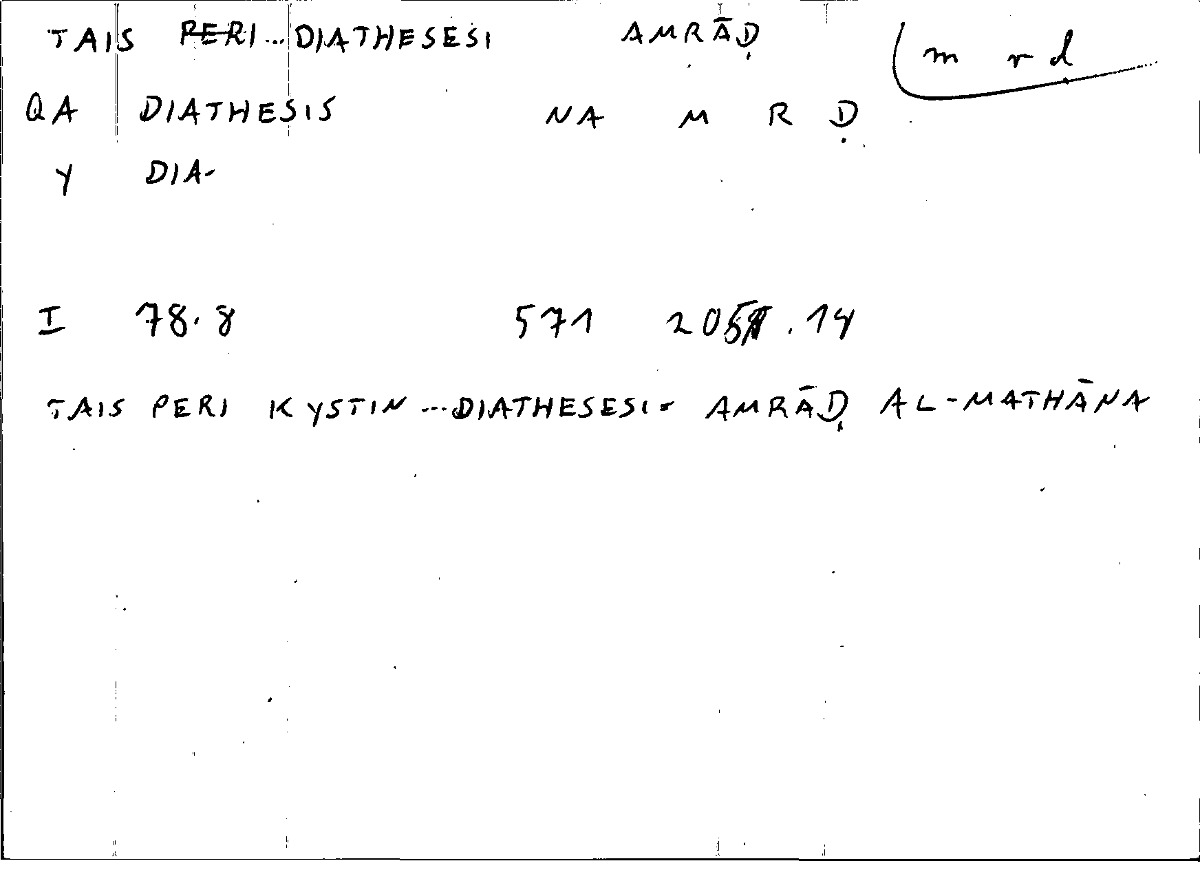 TAIS PERI...DIATHESESI AMRĀḌ m r ḍ
QA DIATHESIS NA M R Ḍ
Y DIA-
I 78.8 571 205 .14
TAIS PERI KYSTIN...DIATHESESI- AMRĀḌ AL-MATHĀNA